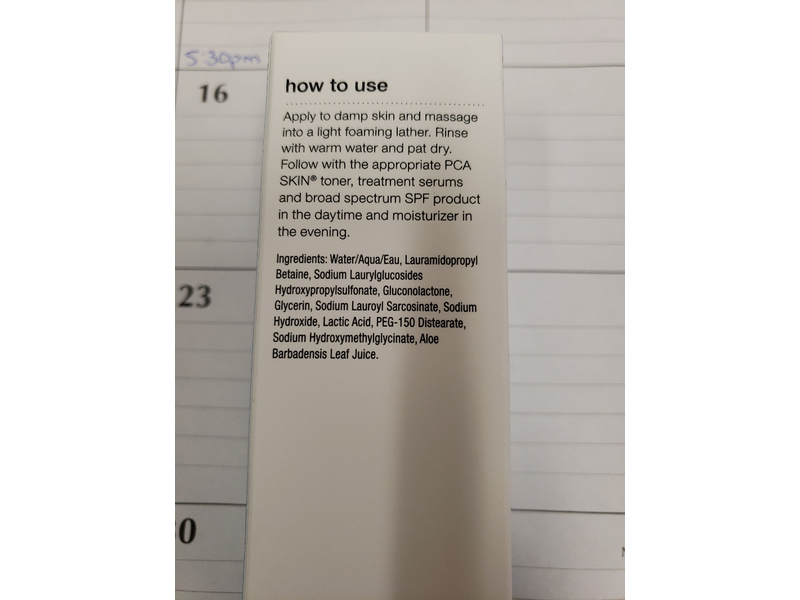 5:30pm
16
how to use
Apply to damp skin and massage
into a light foaming lather. Rinse
with warm water and pat dry.
Follow with the appropriate PCA
SKIN® toner, treatment serums
and broad spectrum SPF product
in the daytime and moisturizer in
the evening.
Ingredients: Water/Aqua/Eau, Lauramidopropyl
Betaine, Sodium Laurylglucosides
Hydroxypropylsulfonate, Gluconolactone,
Glycerin, Sodium Lauroyl Sarcosinate, Sodium
Hydroxide, Lactic Acid, PEG-150 Distearate,
Sodium Hydroxymethylglycinate, Aloe
Barbadensis Leaf Juice.
23